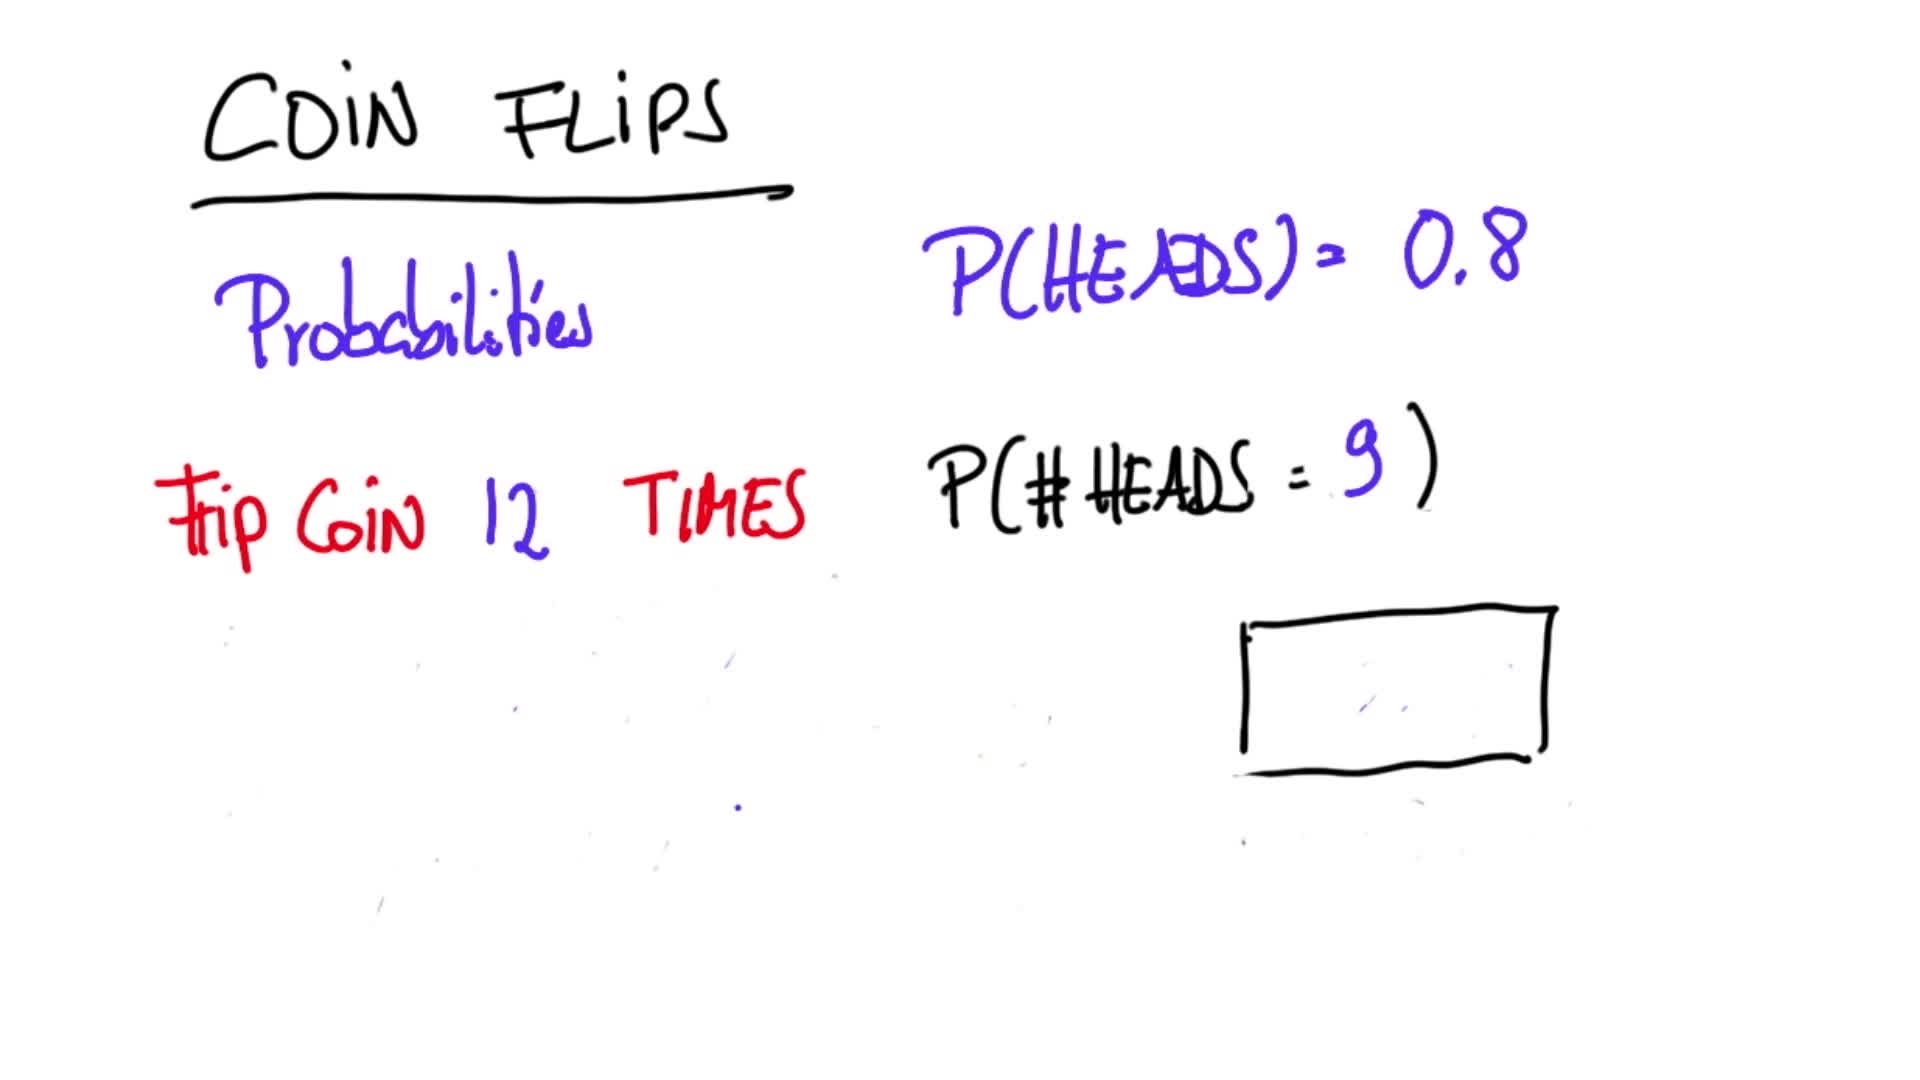 COIN FLIPS
Probabilities
P(HEADS) = 0.8
Flip COIN 12 TIMES
P(# HEADS = 9)